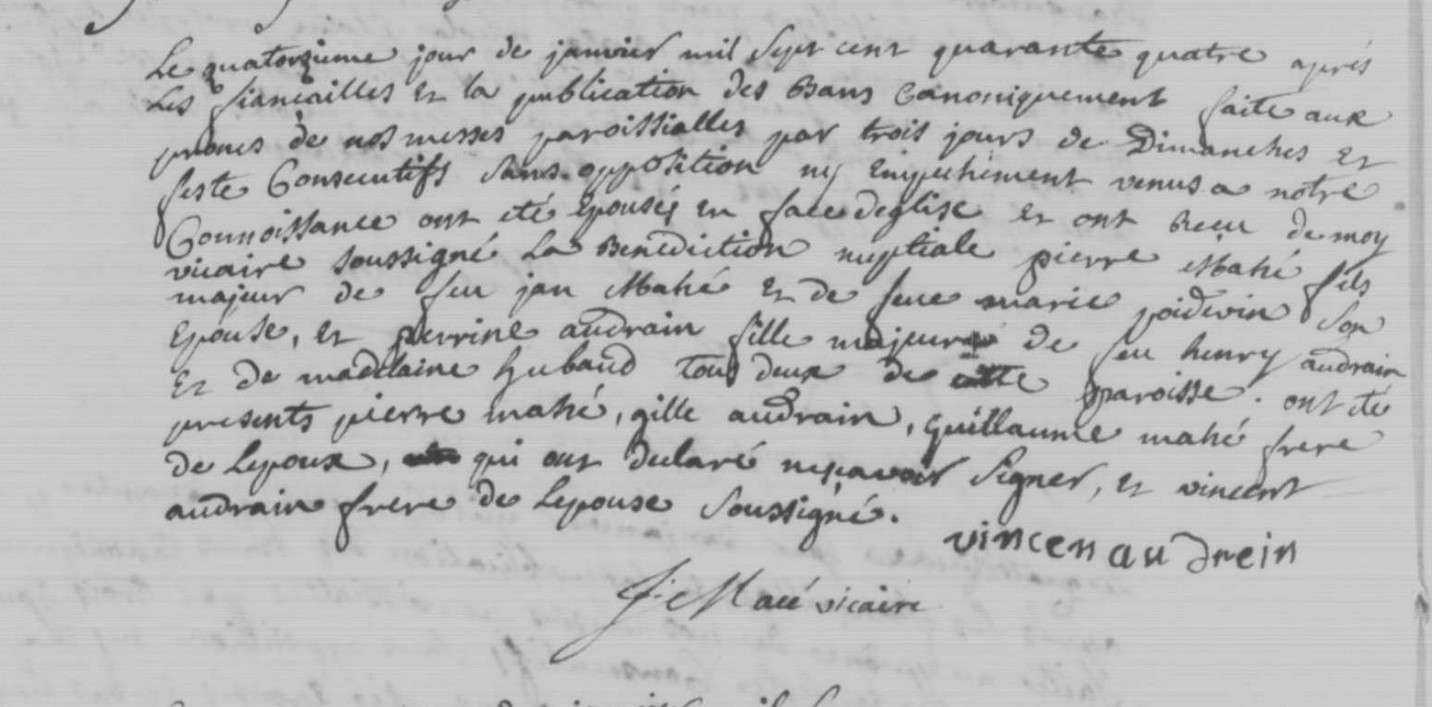 Le quatorzieme jour de janvier mil sept cent quarante quatre après
les fiancailles et la publication des Bans Canoniquement faite aux
prones de nos messes paroissialles par trois jours de Dimanches et
feste Consecutifs sans opposition ny Empechement venus a notre
Connoissance ont eté Epousés en face deglise et ont receu de moy
vicaire soussigné la Benediction nuptiale pierre Mahé fils
majeur de feu jan Mahé et de feue marie poidevin son
Epouse, et perrine audrain fille majeure de feu henry audrain
Et de madelaine hubaud tous deux de cette paroisse. ont eté
presents pierre mahé, gille audrain, guillaume mahé frere
de Lepoux, qui ont declaré ne sçavoir signer, et vincent
audrain frere de Lepouse soussigné.
vincen audrein
Macé vicaire